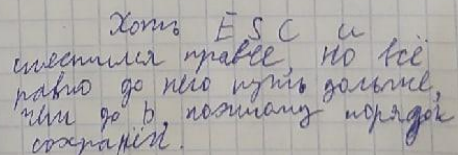 Хоть ESC и
сместился правее, но всё
равно до него путь дольше,
чем до b, поэтому порядок
сохранён.